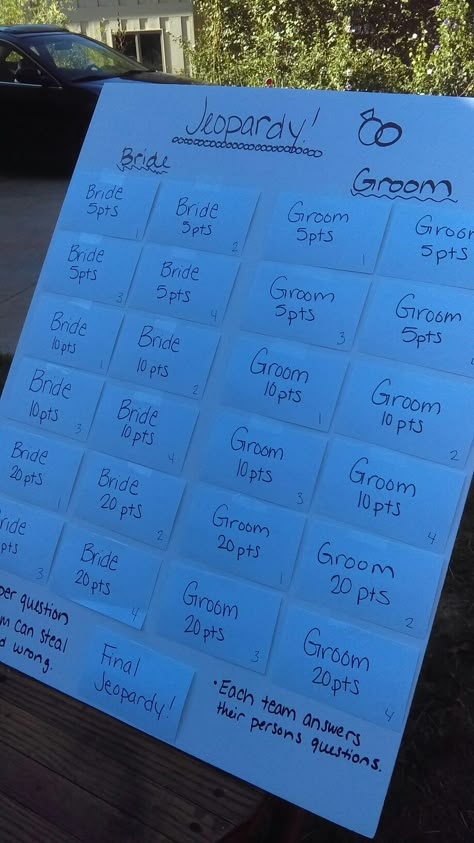 Jeopardy!
Bride
Groom
Bride
5pts
1
Bride
5pts
2
Groom
5pts
1
Groom
5pts
Bride
5pts
3
Bride
5pts
4
Groom
5pts
3
Groom
5pts
Bride
10pts
1
Bride
10pts
2
Groom
10pts
1
Groom
10pts
2
Bride
10pts
3
Bride
10pts
4
Groom
10pts
3
Groom
10pts
4
Bride
20pts
1
Bride
20pts
2
Groom
20pts
1
Groom
20pts
2
ride
pts
3
Bride
20pts
4
Groom
20pts
3
Groom
20pts
4
per question
can steal
wrong.
Final
Jeopardy!
•Each team answers
their persons questions.